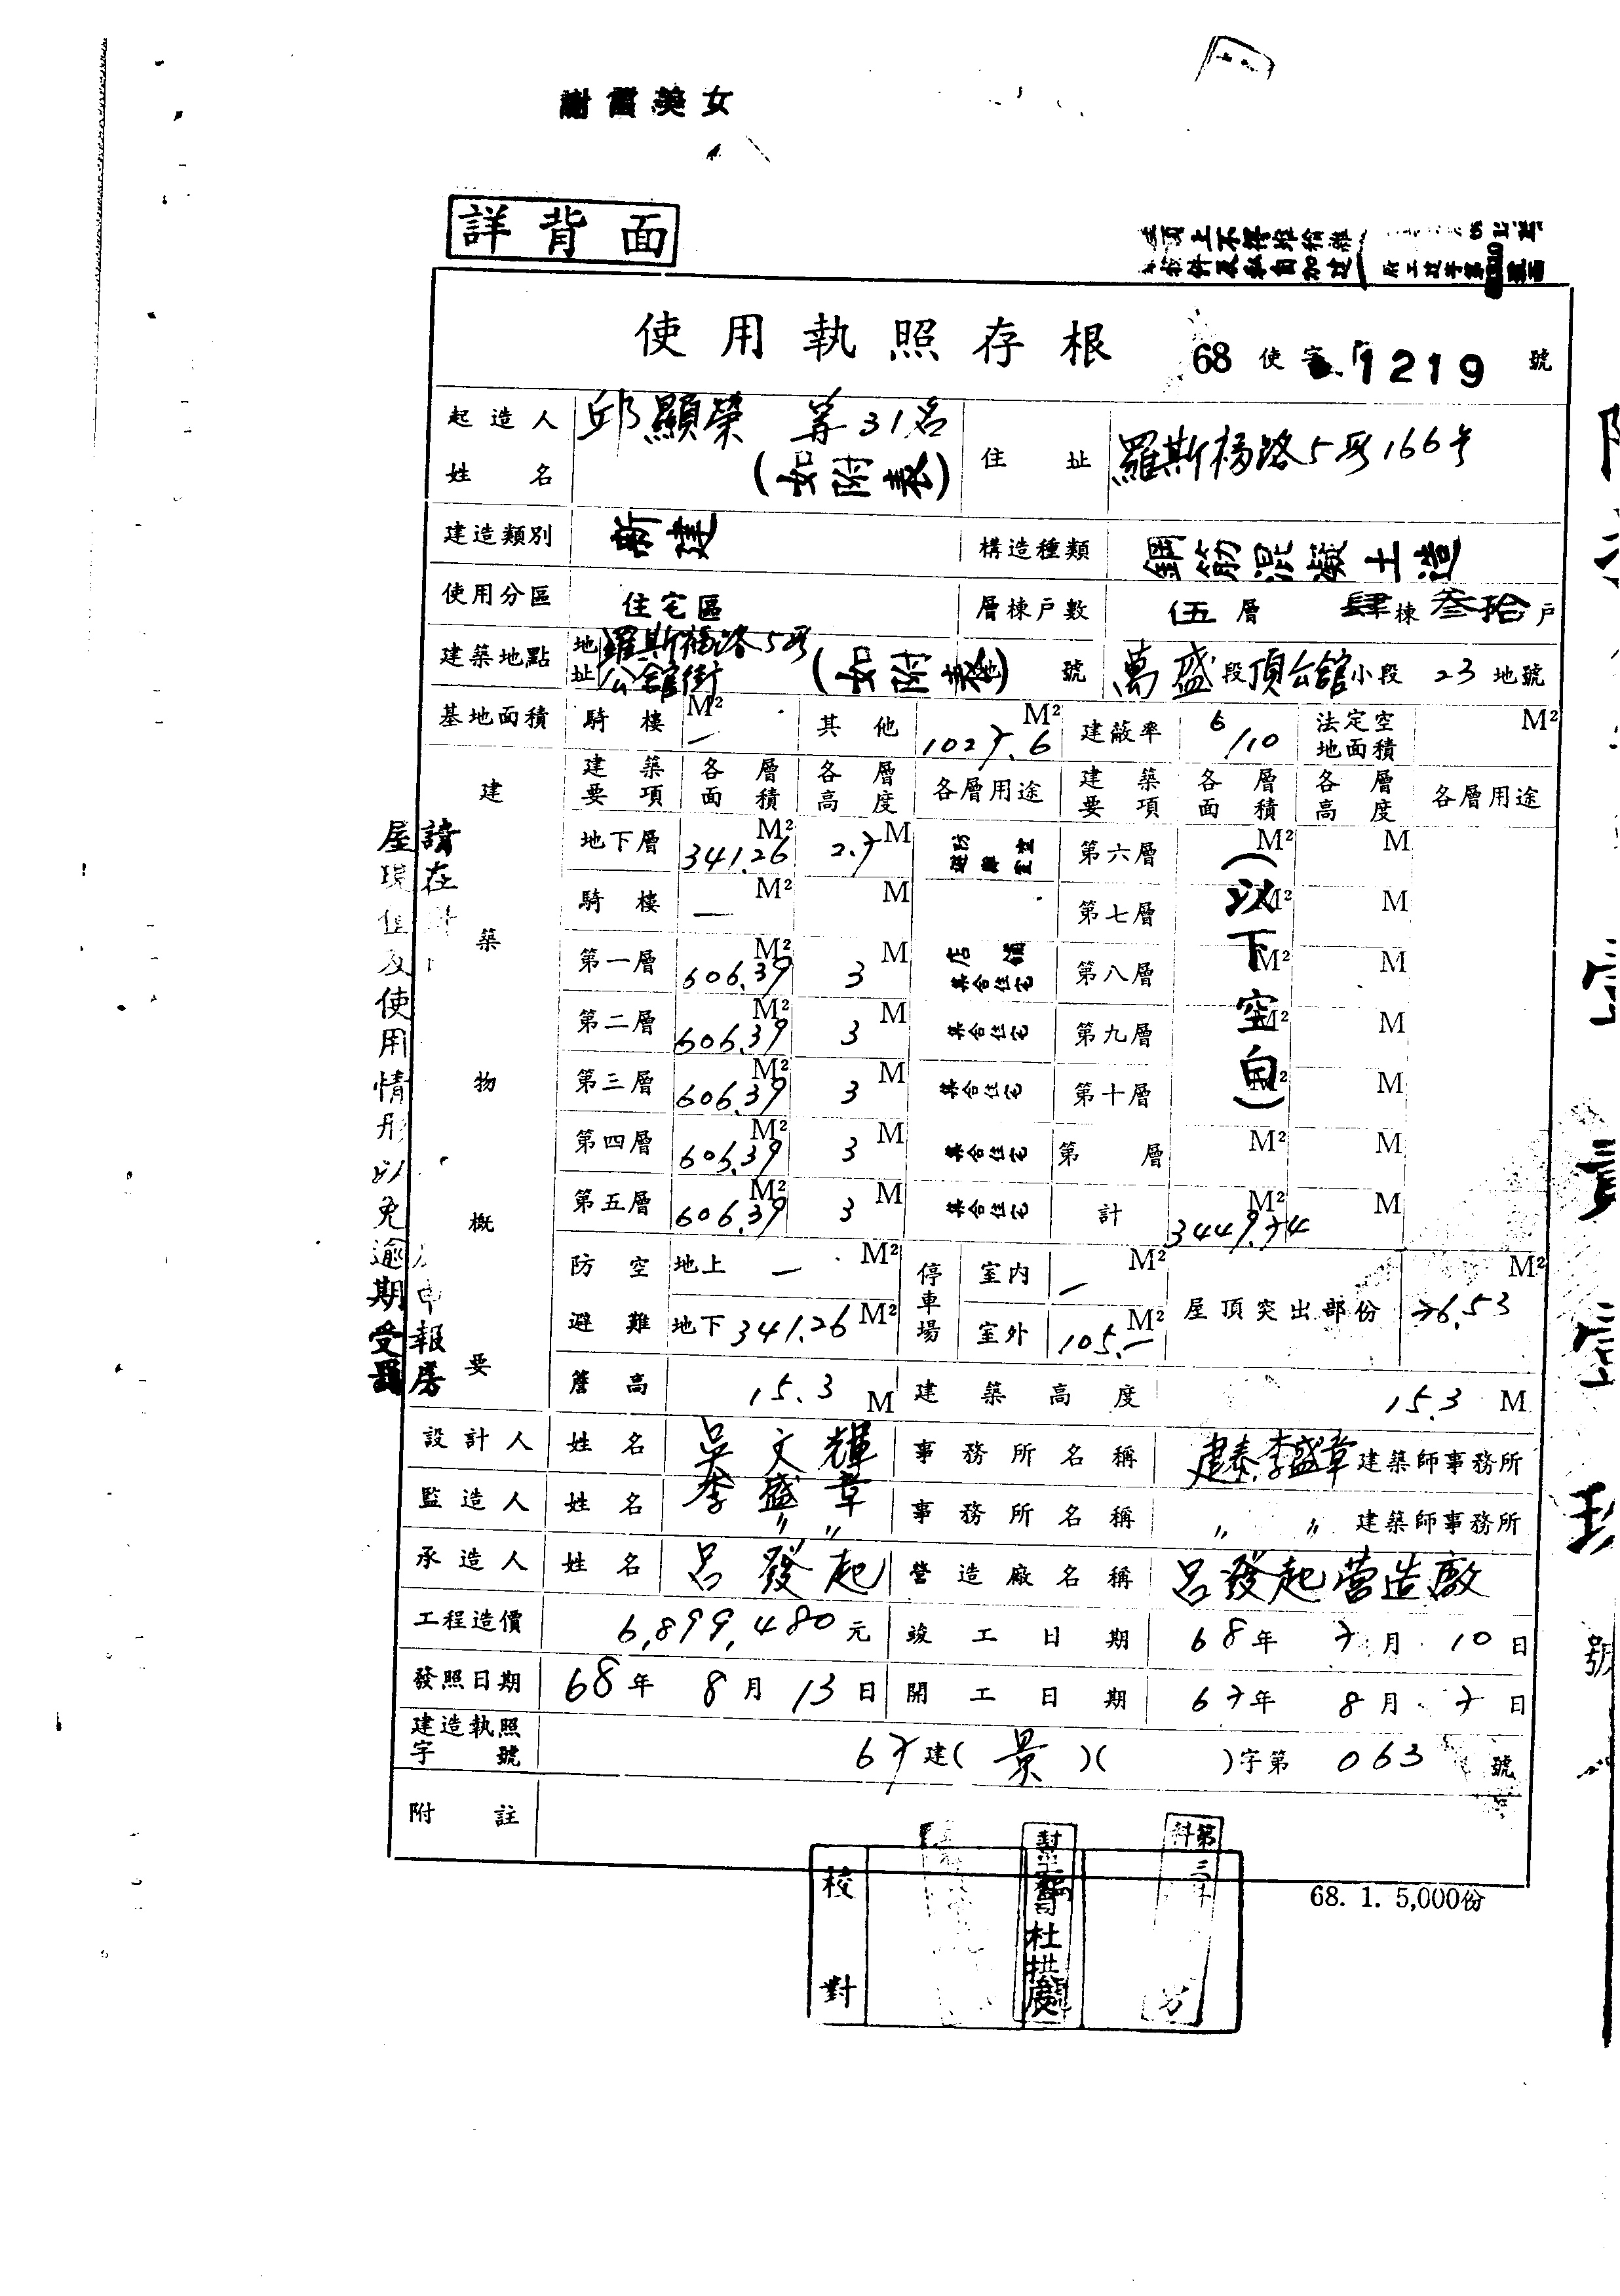 謝 美女
詳背面
使用執照存根 68使字 1219 號
起造人姓名 邱顯榮 等31名 (如附表) 住址 羅斯福路5段166号
建造類別 新建 構造種類 鋼筋混凝土造
使用分區 住宅區 層棟戶數 伍層 肆棟叁拾戶
建築地點 地址 羅斯福路5段 公館街 (如附表) 地號 萬盛段頂公館小段 23地號
基地面積 騎樓 M² — 其他 1027.6 M² 建蔽率 6/10 法定空地面積 M²
建築物概要
建築要項 各層面積 各層高度 各層用途 建築要項 各層面積 各層高度 各層用途
地下層 341.26 M² 2.7 M 第六層 M² M
騎樓 — M² M 第七層 M² M
第一層 606.39 M² 3 M 店舖 集合住宅 第八層 M² M
第二層 606.39 M² 3 M 集合住宅 第九層 M² M
第三層 606.39 M² 3 M 集合住宅 第十層 M² M
第四層 606.39 M² 3 M 集合住宅 第 層 M² M
第五層 606.39 M² 3 M 集合住宅 計 3449.74 M² M
(以下空白)
防空避難 地上 — M² 停車場 室內 — M² 屋頂突出部份 76.53 M²
地下 341.26 M² 室外 105.— M²
簷高 15.3 M 建築高度 15.3 M
設計人 姓名 吳文輝 李盛章 事務所名稱 建泰.李盛章建築師事務所
監造人 姓名 〃 〃 事務所名稱 〃 〃 建築師事務所
承造人 姓名 呂發起 營造廠名稱 呂發起營造廠
工程造價 6,899,480元 竣工日期 68年 7月 10日
發照日期 68年 8月 13日 開工日期 67年 8月 7日
建造執照字號 67建(景)( )字第 063 號
附註
68. 1. 5,000份
校對
杜
第三科
請在 申報房
屋現值及使用情形以免逾期受罰
號